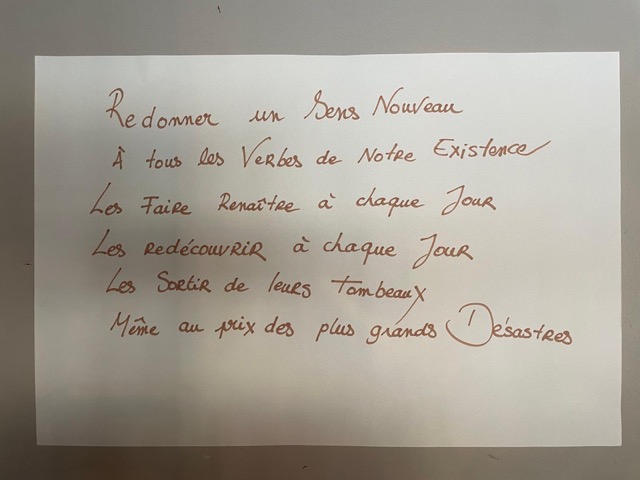 Redonner un Sens Nouveau
À tous les Verbes de Notre Existence
Les Faire Renaître à chaque Jour
Les redécouvrir à chaque Jour
Les Sortir de leurs tombeaux
Même au prix des plus grands Désastres